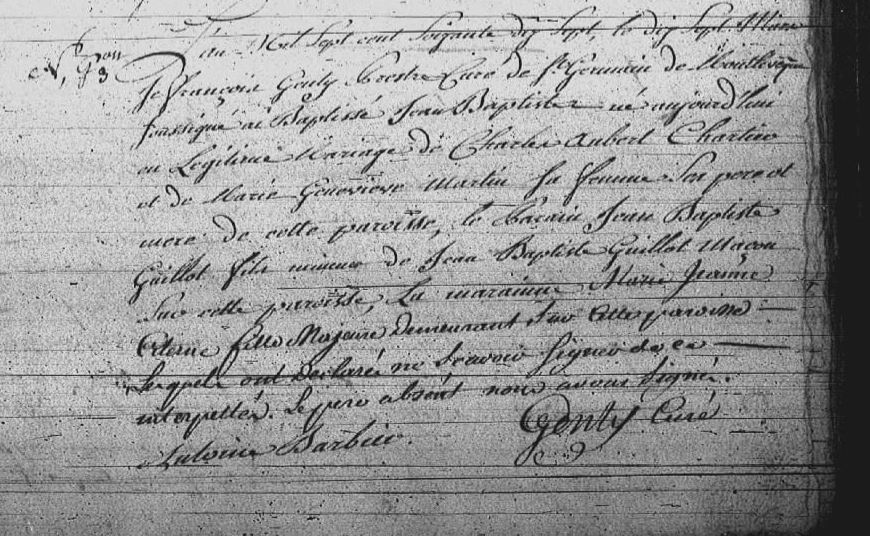 N, 13 bon
L'an Mil Sept cent Soixante dix Sept, le dix Sept Mars
Je françois Gonty Prestre Curé de St Germain de
soussigné ai Baptissé Jean Baptiste né aujourd'hui
en Legitime Mariage de Charles Aubert Chartier
et de Marie Genevieve Martin Sa femme Ses pere et
mere de cette paroisse, le Parain Jean Baptiste
Guillot fils mineur de Jean Baptiste Guillot Maçon
Sur cette paroisse, La maraine Marie Jeanne
fille Majeure demeurant Sur cette paroisse
Lesquels ont declaré ne Scavoir Signer de ce
interpellés. Le pere absent nous avons Signé.
Antoine Barbier. Gonty Curé